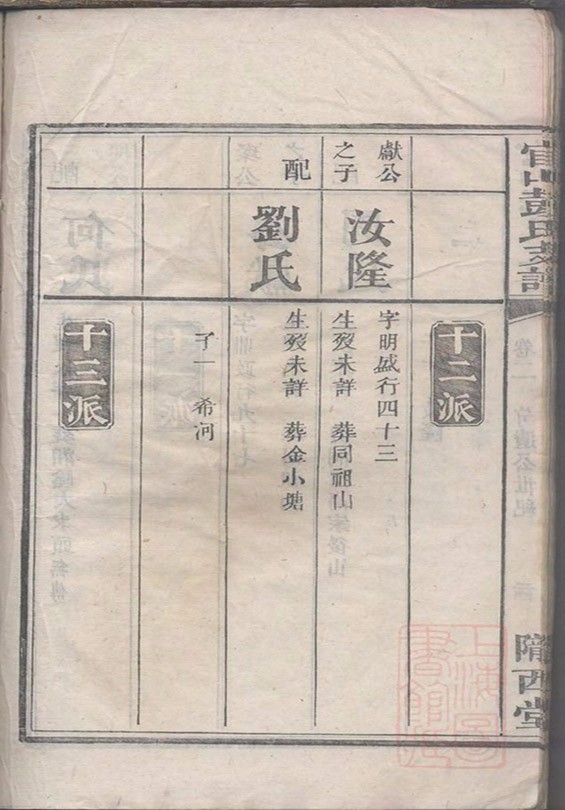 官山彭氏支譜
隴西堂
十二派
獻公
之子
汝隆
字明盛行四十三
生歿未詳 葬同祖山
配
劉氏
生歿未詳 葬金小塘
子一 希河
十三派
上海圖
書館藏